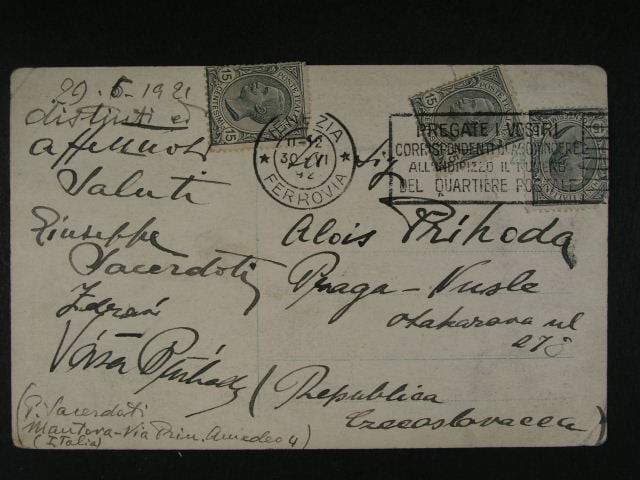 29.6-1921
distinti ed
affettuosi
Saluti
Giuseppe
Sacerdoti
Zdraví
Váša Příhoda
(P. Sacerdoti
Mantova-Via Prin. Amedeo 4
(Italia)
15
15
15
VENEZIA
11-12
30.VI
FERROVIA
PREGATE I VOSTRI
CORRISPONDENTI DI AGGIUNGERE
ALL'INDIRIZZO IL NUMERO
DEL QUARTIERE POSTALE
Sig
Alois Příhoda
Praga-Nusle
Otakarova ul
(Republica
Czecoslovacca)